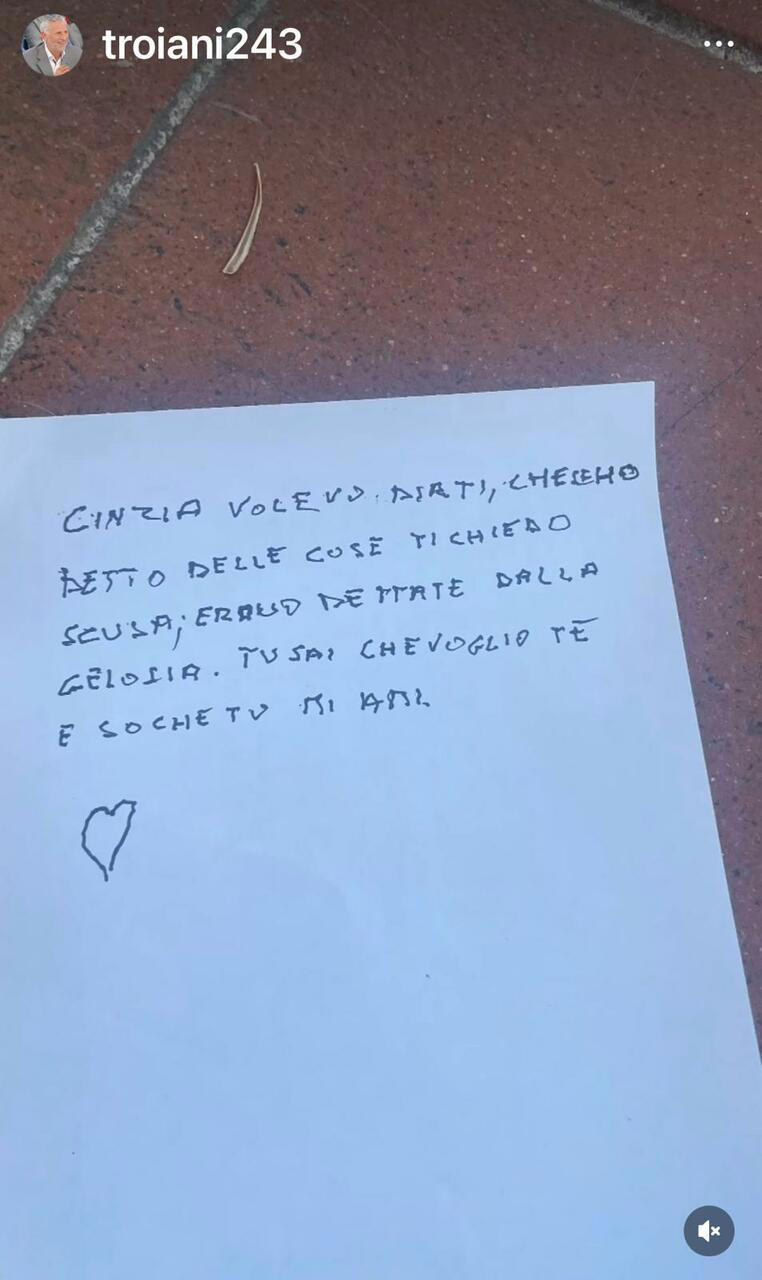 troiani243
CINZIA VOLEVO DIRTI, CHE SE HO
DETTO DELLE COSE TI CHIEDO
SCUSA; ERANO DETTATE DALLA
GELOSIA. TU SAI CHE VOGLIO TE
E SO CHE TU MI AMI.